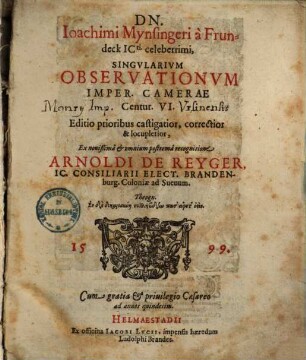 DN.
Ioachimi Mynsingeri à Frun-
deck ICti. celeberrimi,
SINGVLARIVM
OBSERVATIONVM
IMPER. CAMERAE
Centur. VI.
Editio prioribus castigatior, correctior
& locupletior,
Ex novissima & omnium postrema recognitione
ARNOLDI DE REYGER,
IC. CONSILIARII ELECT. BRANDEN-
burg. Coloniæ ad Sueuum.
Theogn.
15 99.
Cum gratia & priuilegio Cæsareo
ad annos quindecim.
HELMAESTADII
Ex officina IACOBI LVCII, impensis hæredum
Ludolphi Brandes.